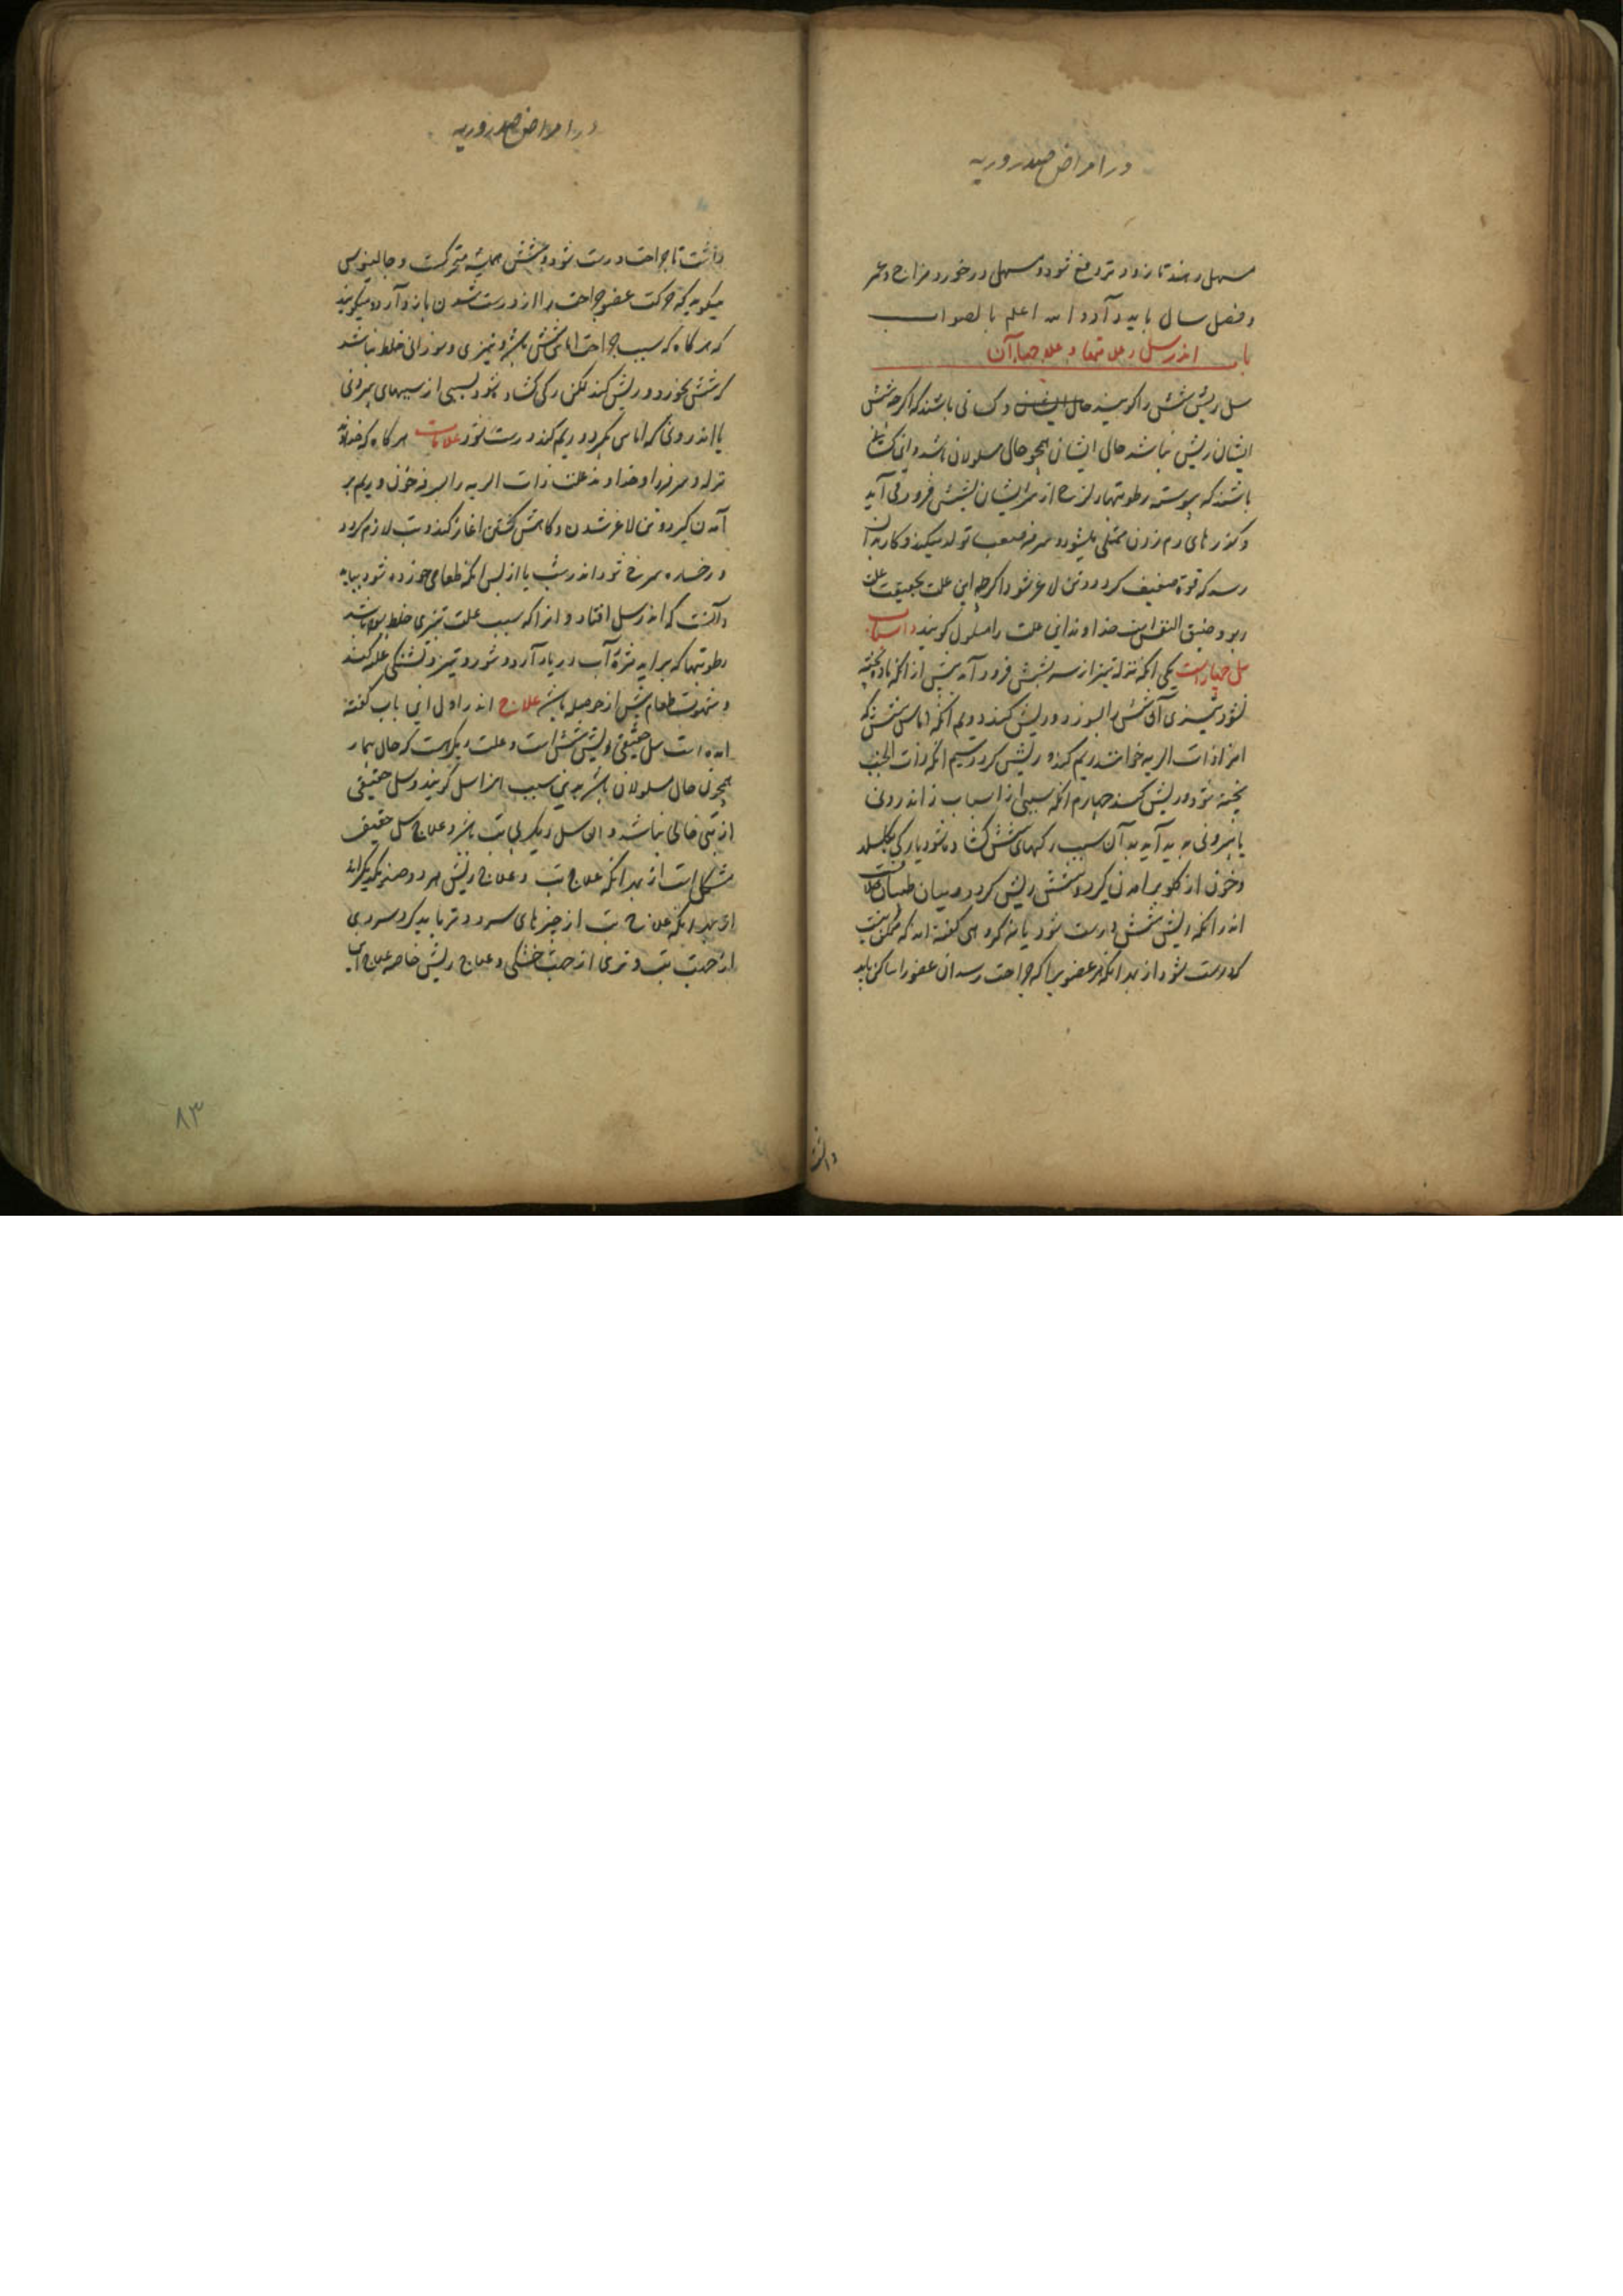 در امراض صدر و ریه
مسهل دهند تا زودتر دفع شود و مسهل در خورد مزاج و عمر
و فصل سال باید و آرد الله اعلم بالصواب
باب اندر سل و علامتها و علاجهاء آن
سل ریش شش را گویند و کسانی باشند که اگرچه شش
ایشان ریش نباشد حال ایشان همچو حال مسلولان باشد و این
باشند که پیوسته رطوبتهاء لزج از سر ایشان بشش فرو می آید
و گذرهای دم زدن ممتلی میشود و سرفه صعب تولد میکند و کار بدان
رسد که قوة ضعیف گردد و تن لاغر شود اگرچه این علت بحقیقت علت
ربو و ضیق النفس است خداوند این علت را مسلول گویند و اسباب
سل چهار است یکی آنکه نزله تیز از سر بشش فرود آمد پیش از آنکه پخته
شود تیزی آن شش را بسوزد و ریش کند دویم آنکه اماس شش که
انرا ذات الریه خوانند ریم کند و ریش گردد سیم آنکه ذات الجنب
پخته شود و ریش کند چهارم آنکه سببی از اسباب اندرونی
یا بیرونی پدید آید بدان سبب رگهای شش گشاده شود یا رگی بگسلد
و خون از گلو برامدن گیرد و شش ریش گردد و میان طبیبان
اندر آنکه ریش شش درست شود یا نه گروهی گفته اند که ممکن نیست
که درست شود از بهر آنکه هر عضویرا که جراحت رسد آن عضو را ساکن باید
داشت
در امراض صدر و ریه
داشت تا جراحت درست شود و شش همیشه متحرکست و جالینوس
میگوید که حرکت عضو جراحت را از درست شدن باز و آرد و میگویند
که هر گاه که سبب جراحت اماس شش باشد و تیزی و سوزانی خلط نباشد
که شش بخورد و ریش کند لکن رگی گشاده شود بسببی از سببهای بیرونی
یا اندرونی که اماس نگیرد و ریم نکند درست شود علامات هر گاه که خداوند
نزله و سرفه و خداوند علت ذات الریه را بسرفه خون و ریم بر
آمدن گیرد و تن لاغر شدن و کاهش گشتن اغاز کند و تب لازم گردد
و رخساره سرخ شود اندر شب یا از پس آنکه طعامی خورده شود بباید
دانست که اندر سل افتاد و انرا که سبب علت تیزی خلط بوده باشد
رطوبتها که براید مزۀ آب دریا دارد و شور و تیز و تشنگی غلبه کند
و شهوت طعام بیش از حوصله باشد علاج اندر اول این باب گفته
امده است سل حقیقی ریش شش است و علت دیگرست که حال بیمار
همچون حال مسلولان باشد بدین سبب انرا سل گویند و سل حقیقی
از تبی خالی نباشد و ان سل دیگر بی تب باشد و علاج سل حقیقی
مشکل است از بهر آنکه علاج تب و علاج ریش هر دو ضد یکدیگراند
از بهر آنکه علاج تب از چیزهای سرد و تر باید کرد سردی
از جهت تب و تری از جهت خشکی و علاج ریش خاصه علاج این
۸۳